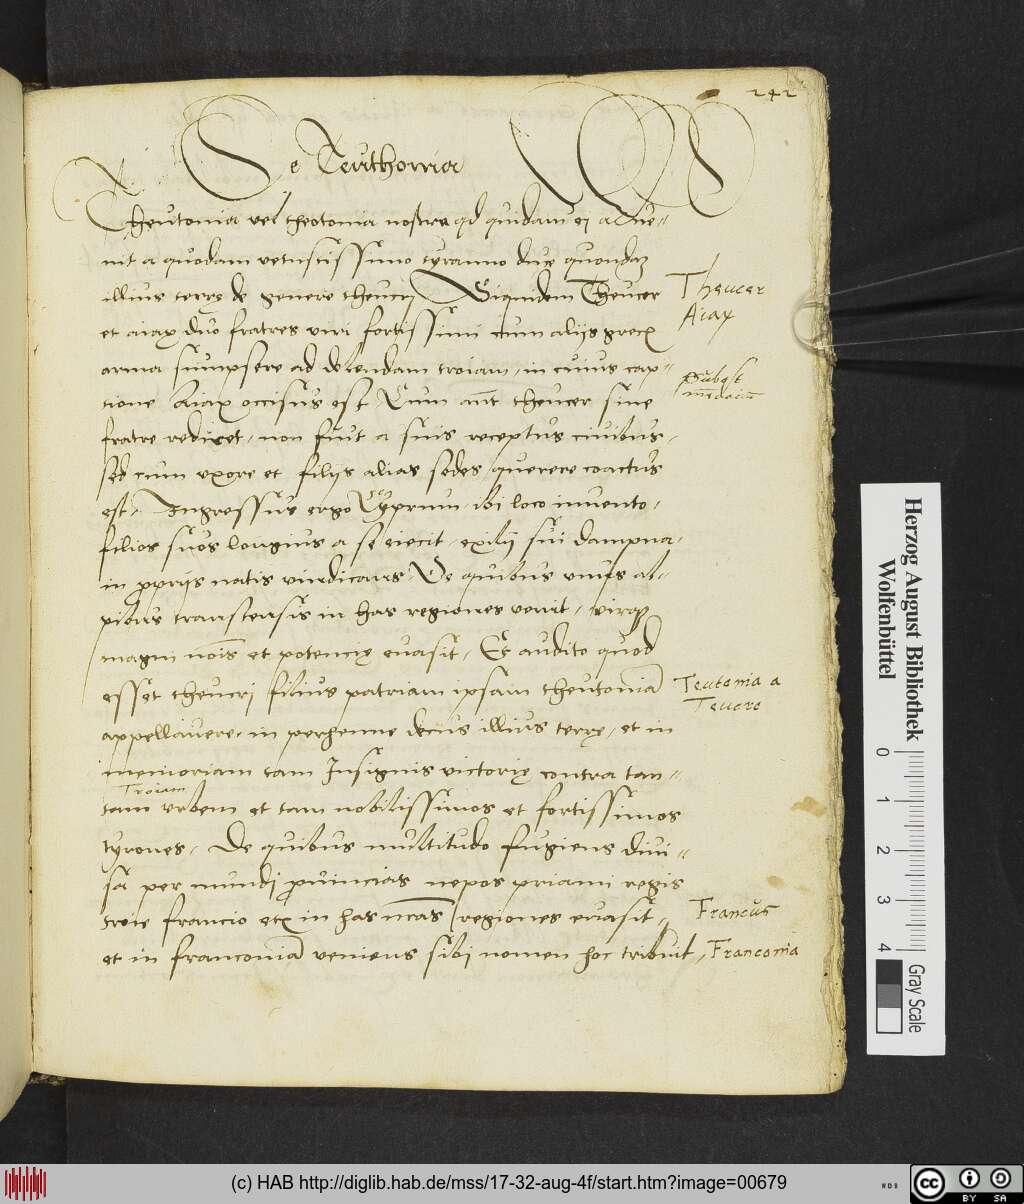 242
De Teuthonia
Theutonia vel theotonia nostra qd quidam ei adue=
nit a quodam vetustissimo tyranno duce quondam
illius terrę de genere theucri Siquidem Theucer
Theucer
et aiax duo fratres viri fortissimi cum alijs grecx
Aiax
arma sumpsere ad delendam troiam, in cuius cap=
subest
tione Aiax occisus est Cum aut theucer sine
fratre rediret, non fuit a suis receptus ciuibus,
sed cum vxore et filijs alias sedes querere coactus
est, Ingressus ergo Cyprum ibi loco inuento,
filios suos longius a se eiecit, exilij sui dampna
in proprijs natis vindicans, De quibus vnus al=
pibus transcensis in has regiones venit, virqz
magni nois et potencię euasit, Et audito quod
esset theucri filius patriam ipsam theutoniā
Teutonia a
Teucro
appellauere, in perhenne decus illius terrę, et in
memoriam tam Insignis victorię contra tan=
Troiam
tam vrbem et tam nobilissimos et fortissimos
tyrones, De quibus multitudo fugiens diui=
sa per mundi prouincias nepos priami regis
troie francio etx in has nras regiones euasit,
Francus
et in franconiā veniens sibi nomen hoc tribuit,
Franconia
Herzog August Bibliothek
Wolfenbüttel
0 1 2 3 4
Gray Scale
(c) HAB http://diglib.hab.de/mss/17-32-aug-4f/start.htm?image=00679
WDB
cc BY SA